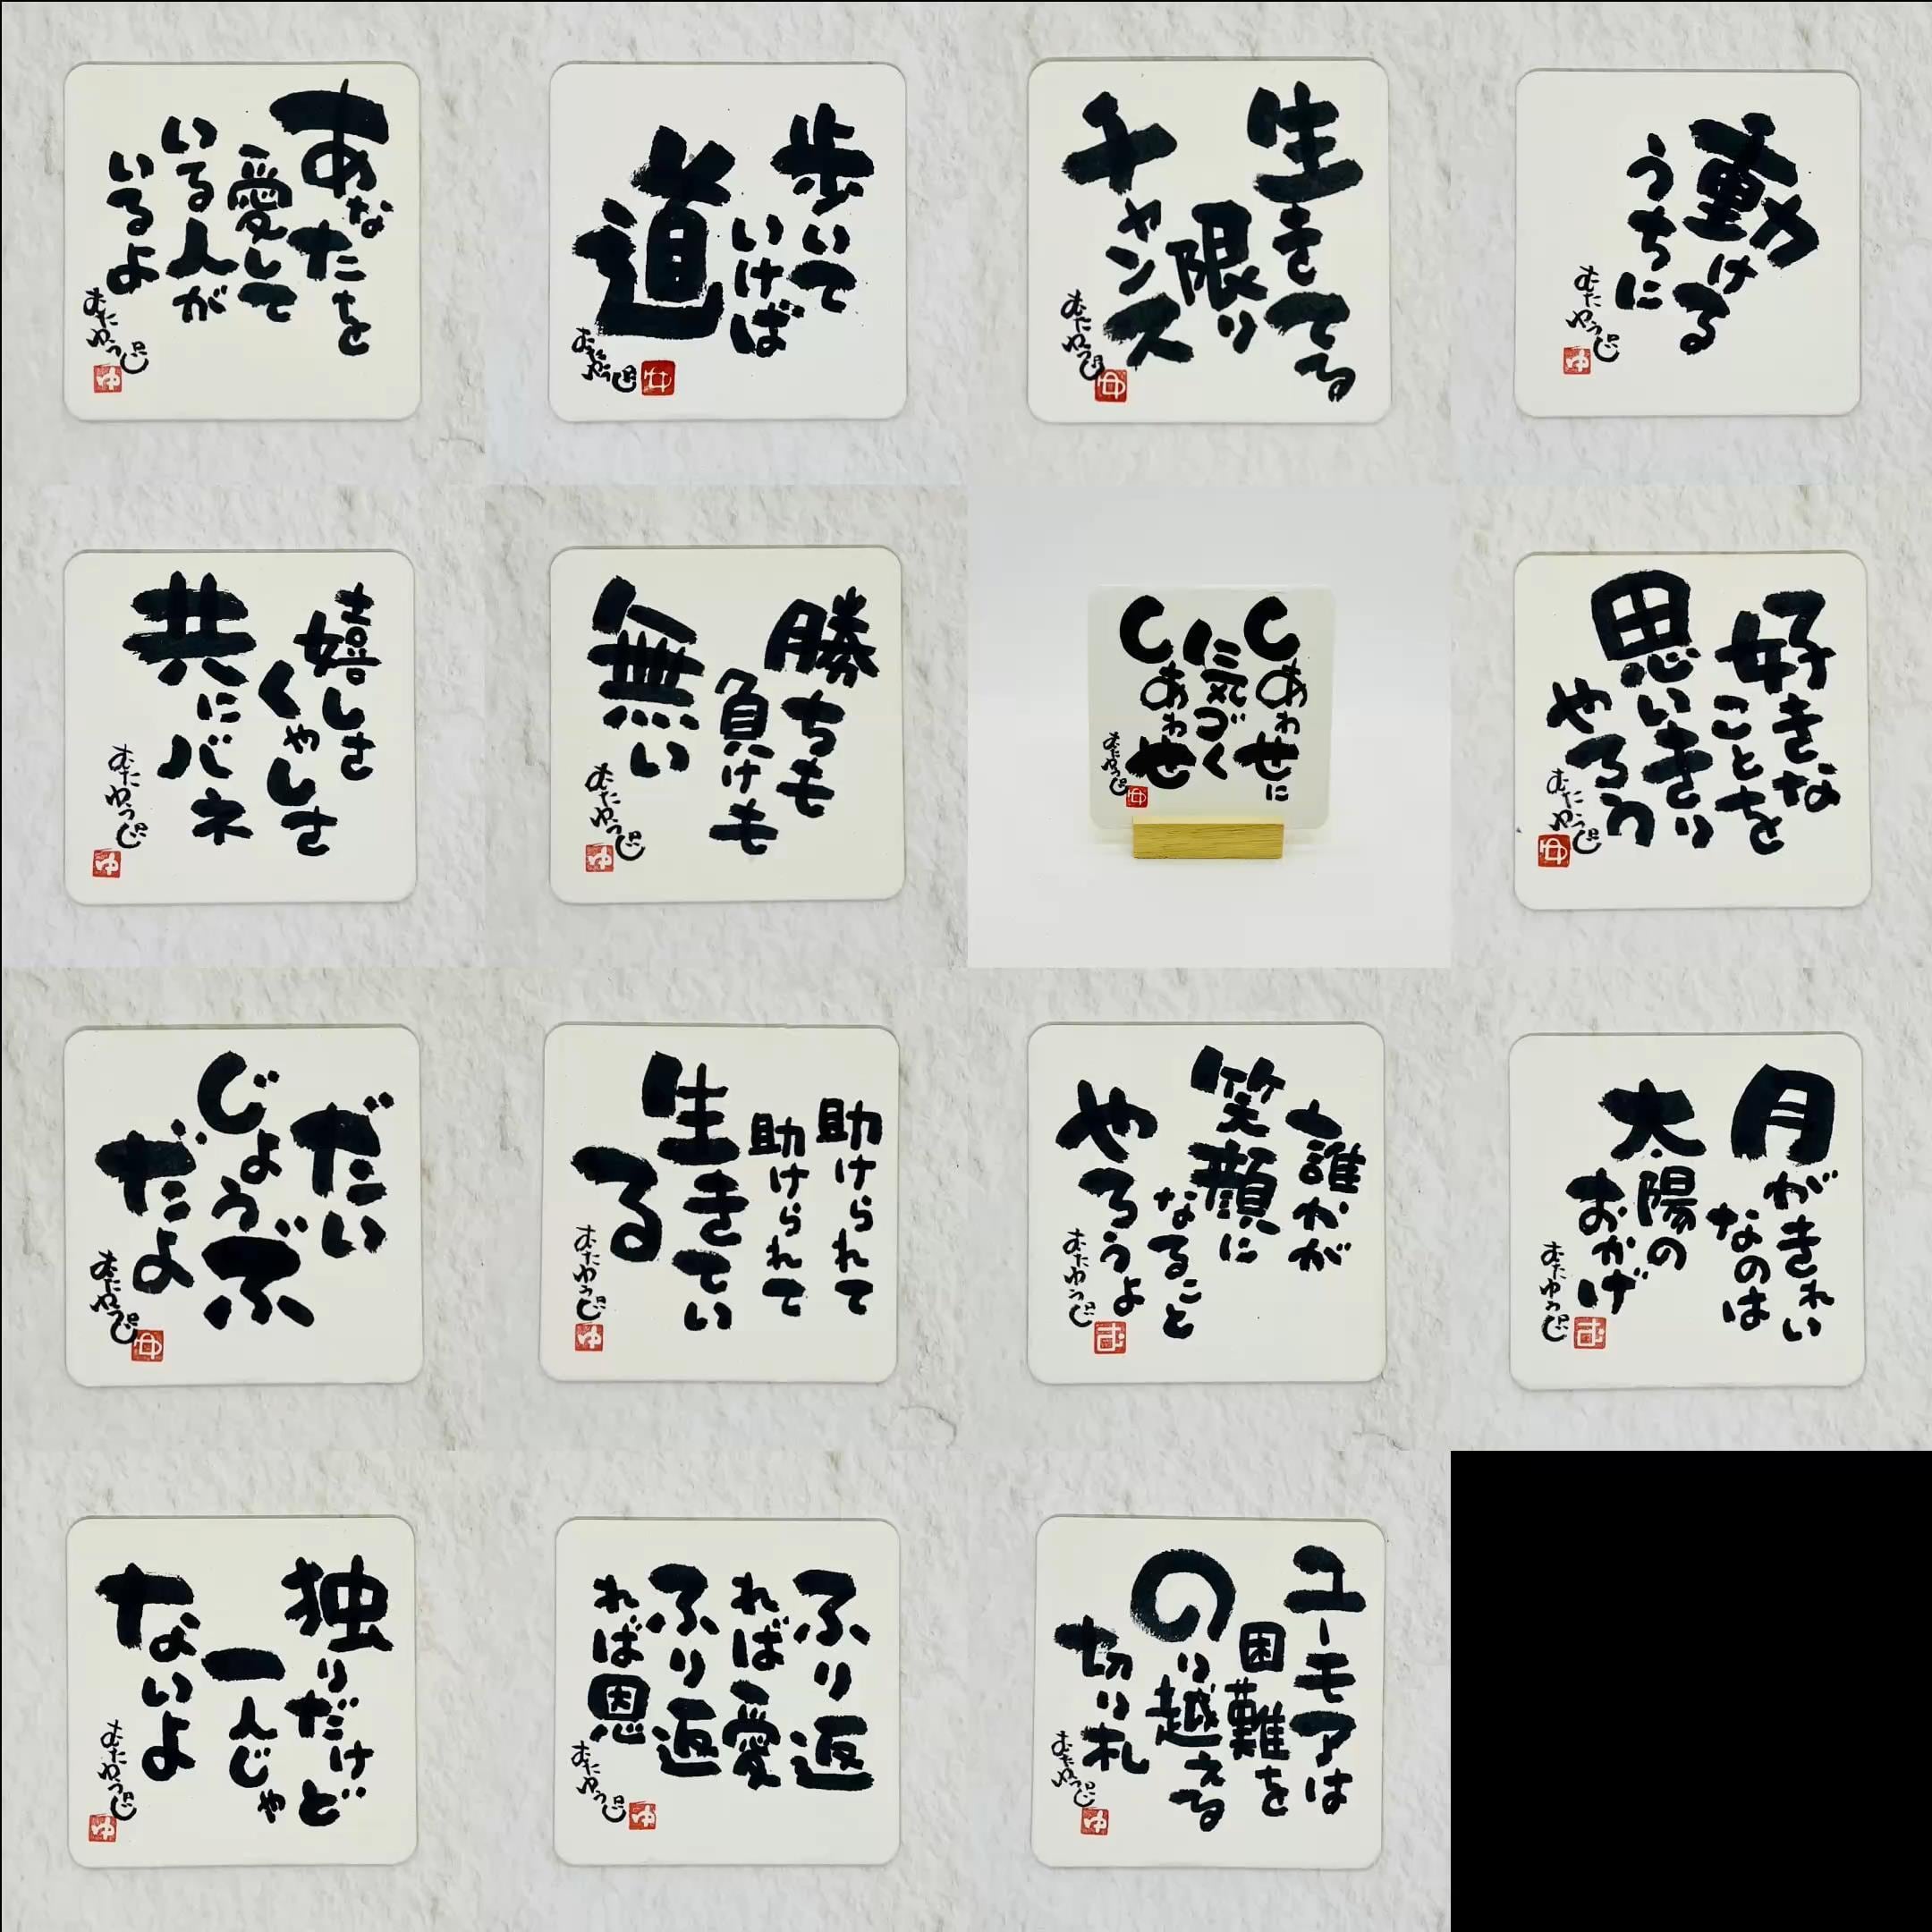 あなたを
愛して
いる人が
いるよ
むたゆうじ
ゆ
歩いて
いけば
道
むたゆうじ
ゆ
生きてる
限り
チャンス
むたゆうじ
ゆ
動ける
うちに
むたゆうじ
ゆ
嬉しさ
くやしさ
共にバネ
むたゆうじ
ゆ
勝ちも
負けも
無い
むたゆうじ
ゆ
しあわせに
気づく
しあわせ
むたゆうじ
ゆ
好きな
ことを
思いきり
やろう
むたゆうじ
ゆ
だい
じょうぶ
だよ
むたゆうじ
ゆ
助けられて
助けられて
生きてい
る
むたゆうじ
ゆ
誰かが
笑顔に
なること
やろうよ
むたゆうじ
む
月がきれい
なのは
太陽の
おかげ
むたゆうじ
む
独りだけど
一人じゃ
ないよ
むたゆうじ
ゆ
ふり返
れば愛
ふり返
れば恩
むたゆうじ
ゆ
ユーモアは
困難を
のり越える
切り札
むたゆうじ
ゆ